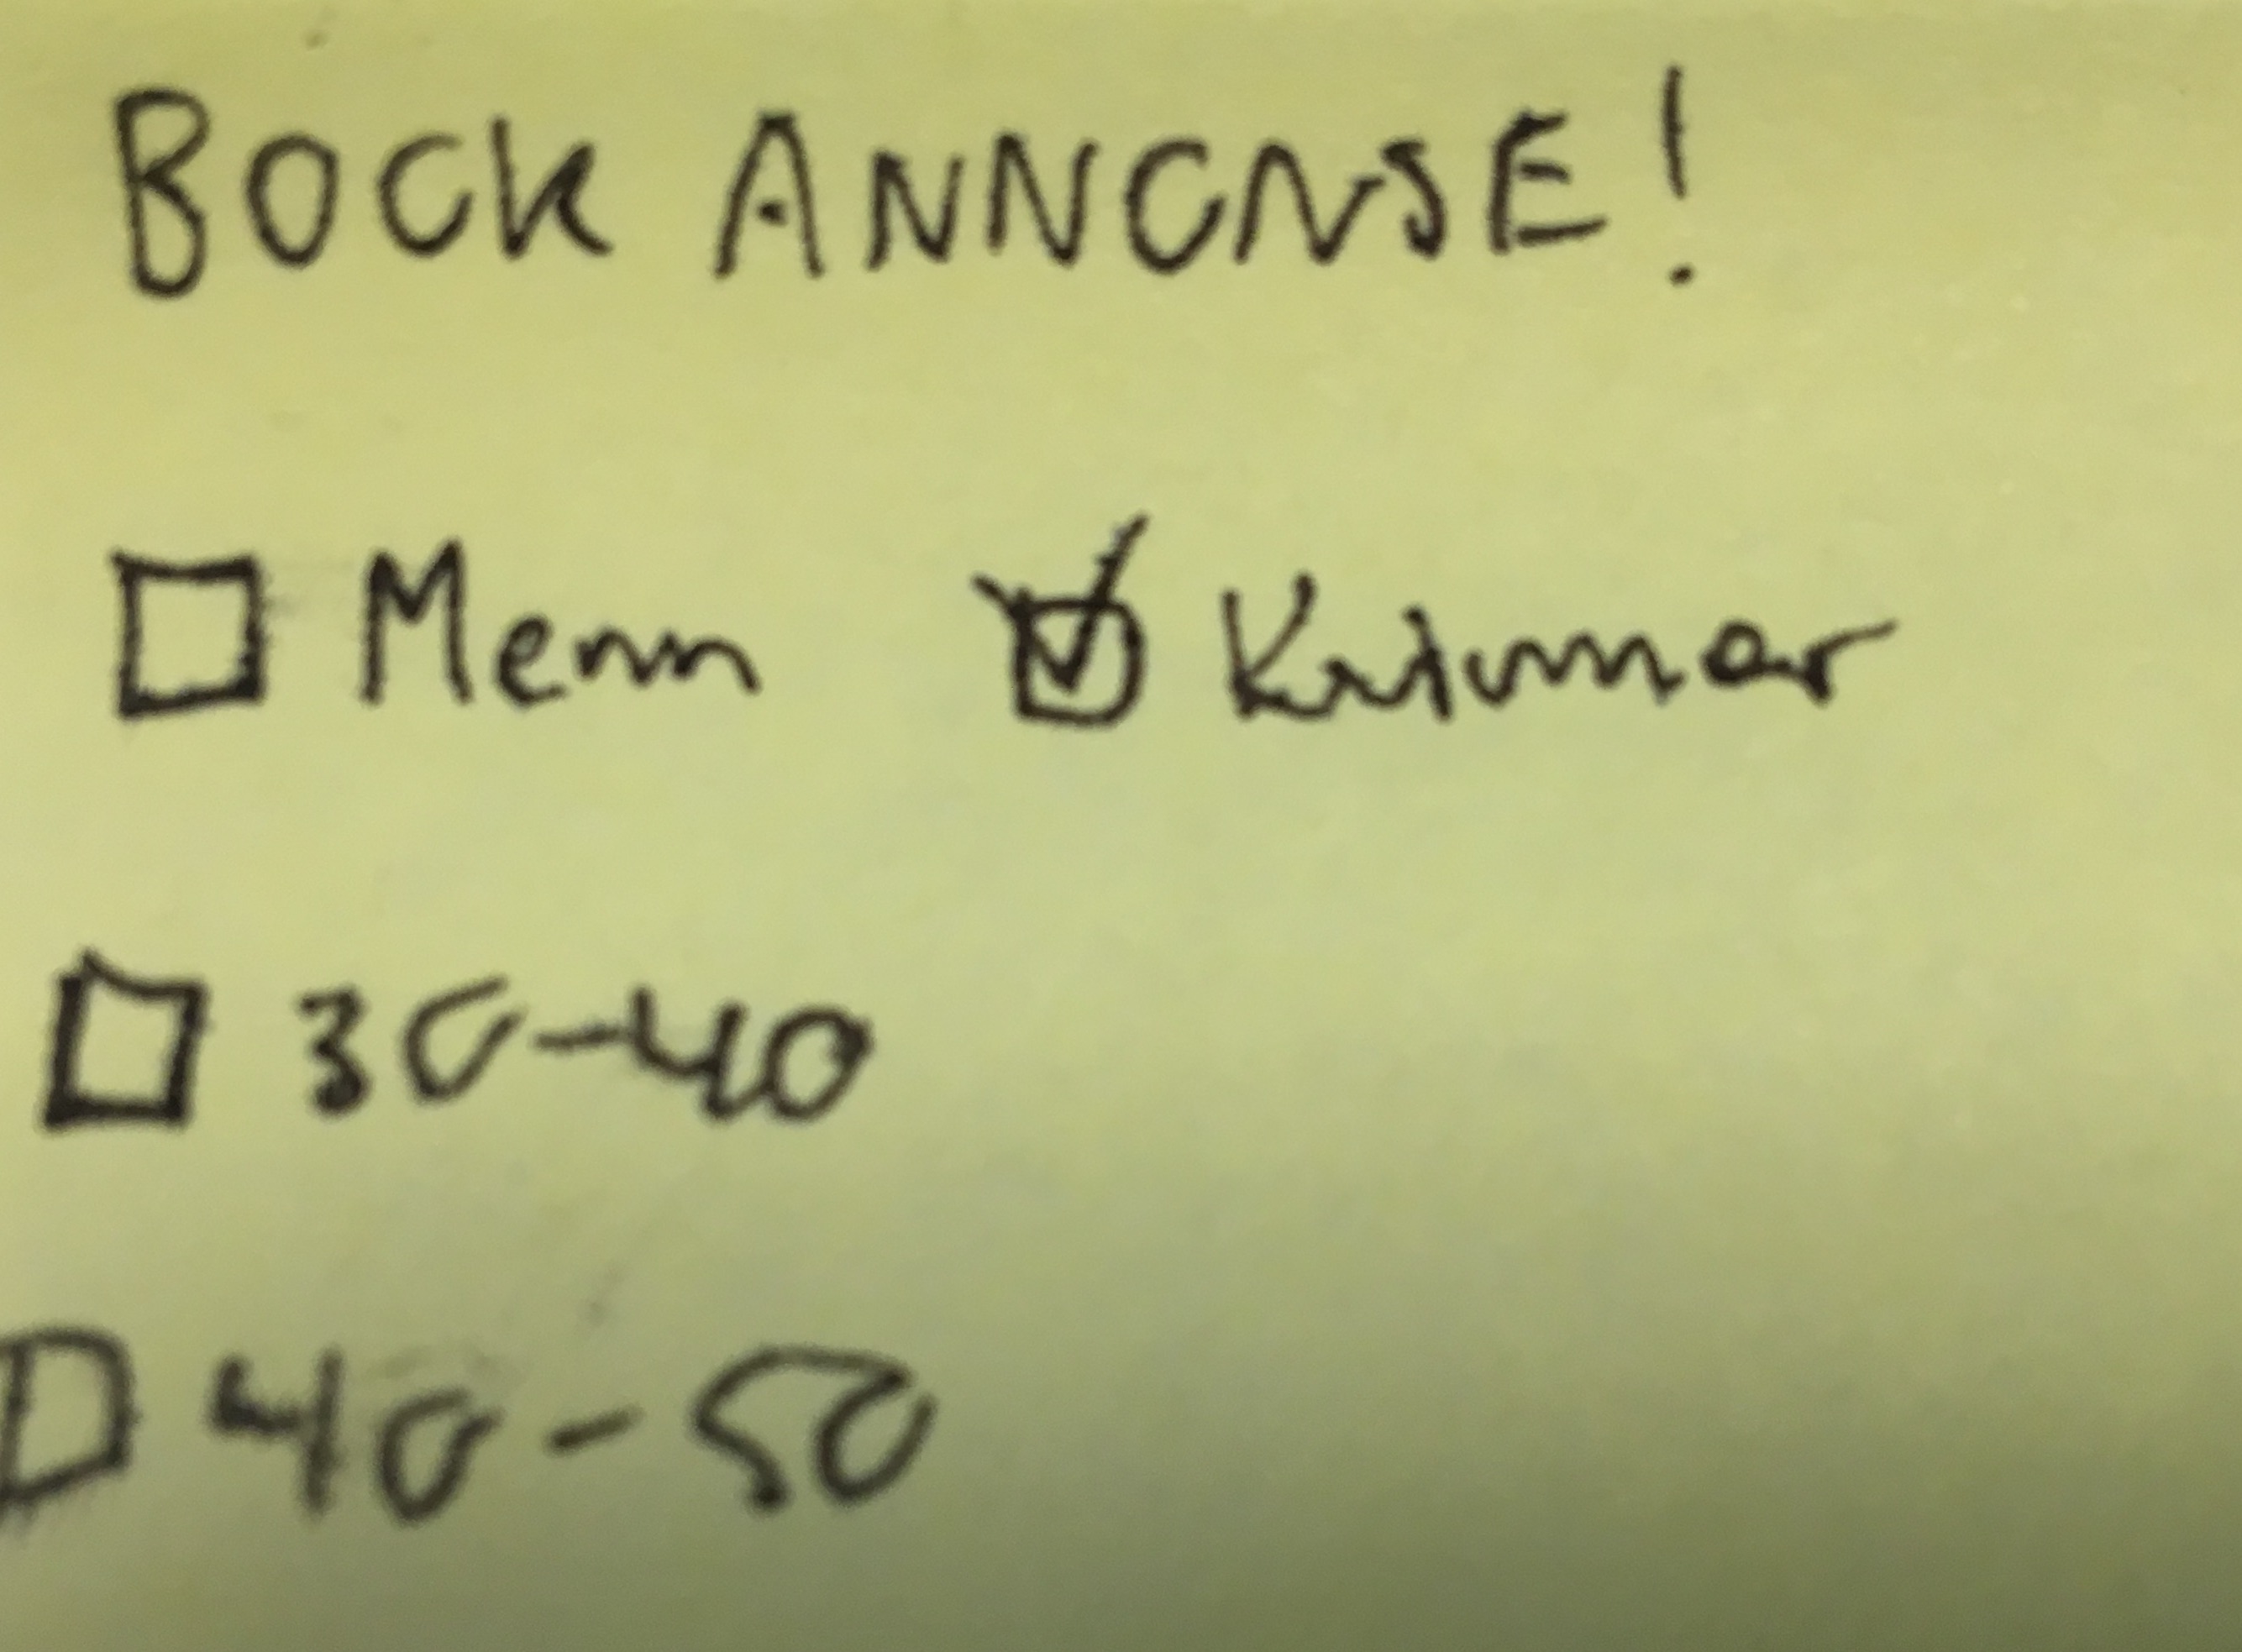 BOCK ANNONSE!
☐ Menn ☑ Kvinner
☐ 30-40
☐ 40-50